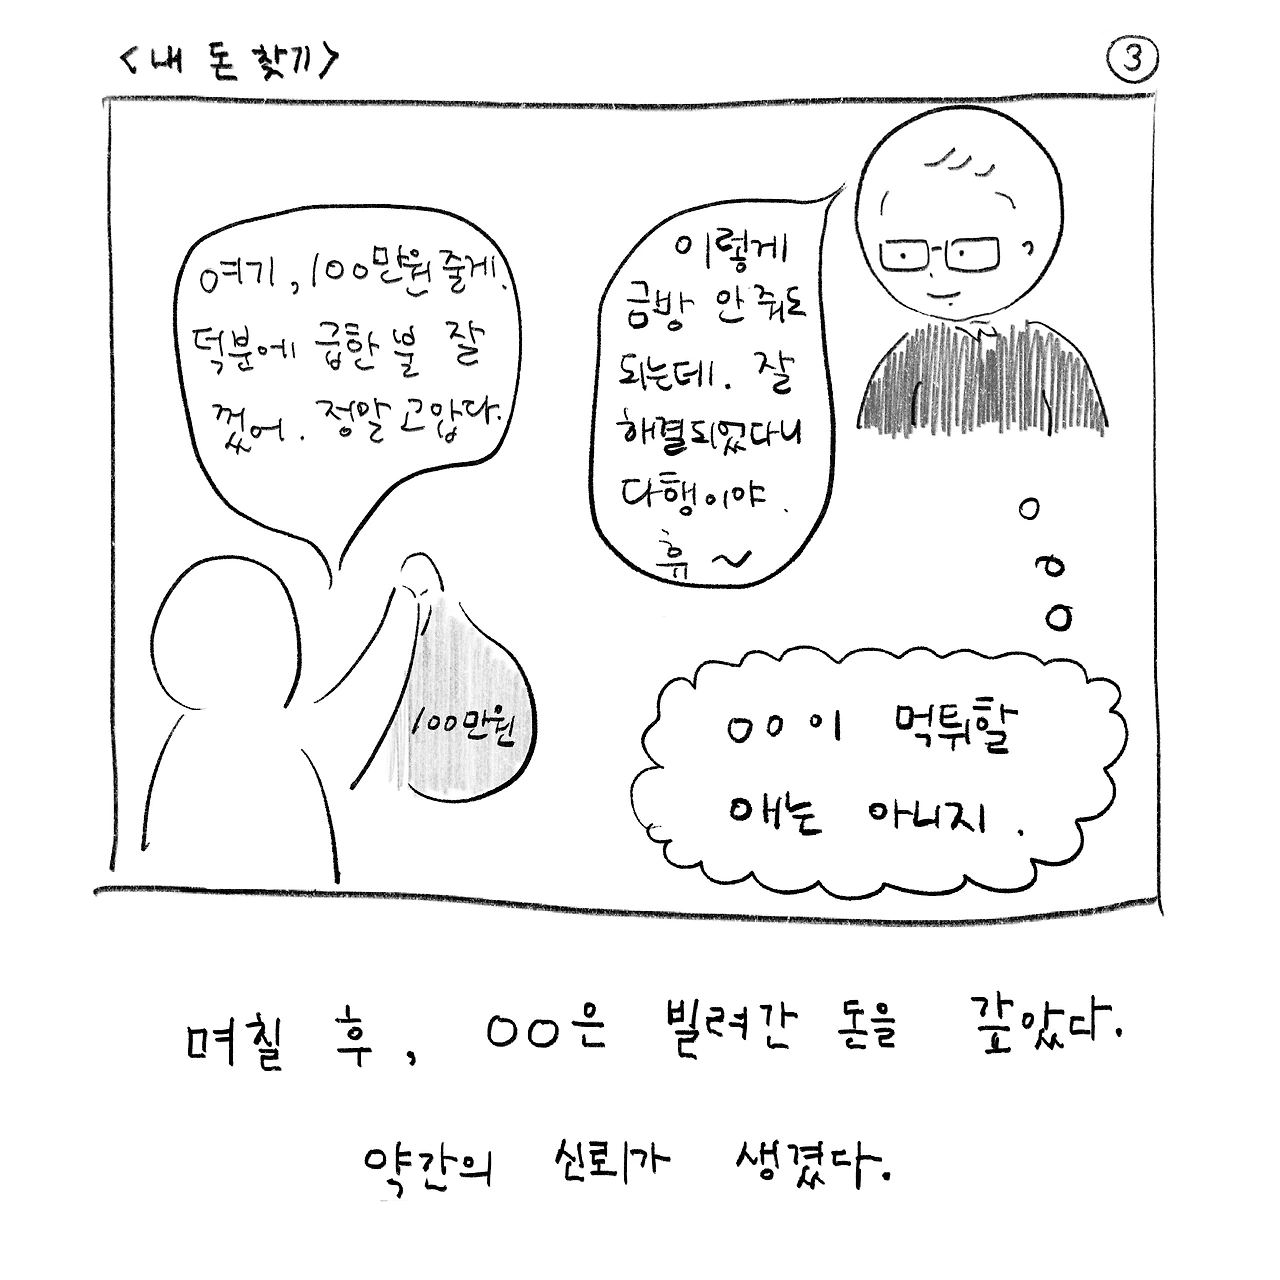 <내 돈 찾기>
3
여기, 100만원 줄게.
덕분에 급한 불 잘
껐어. 정말 고맙다.
이렇게
금방 안 줘도
되는데. 잘
해결되었다니
다행이야.
휴~
100만원
OO이 먹튀할
애는 아니지.
며칠 후, OO은 빌려간 돈을 갚았다.
약간의 신뢰가 생겼다.